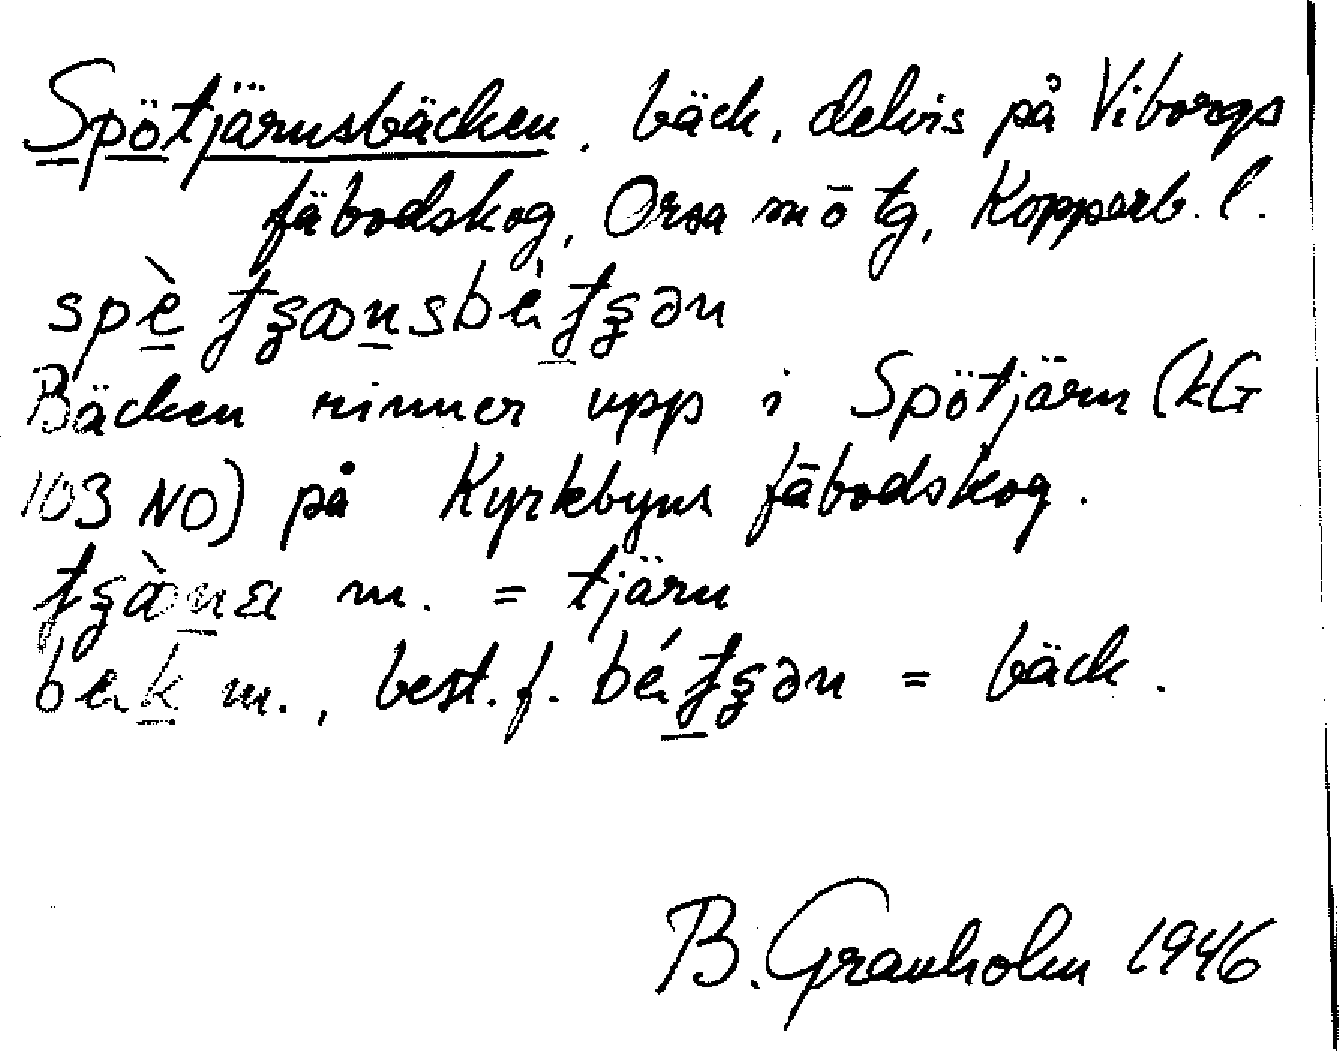 Spötjärnsbäcken. bäck, delvis på Viborgs
fäbodskog, Orsa sn o tg, Kopparb. l.
Bäcken rinner upp i Spötjärn (kG
103 NO) på Kyrkbyns fäbodskog.
m. = tjärn
m., best. f. = bäck.
B. Granholm 1946